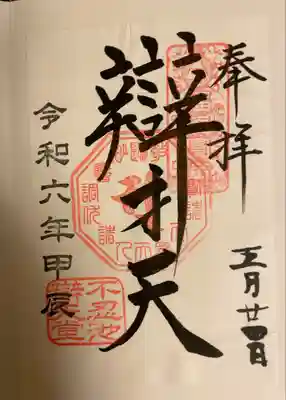 奉拝
五月廿四日
辯才天
令和六年甲辰
不忍池
辯天堂